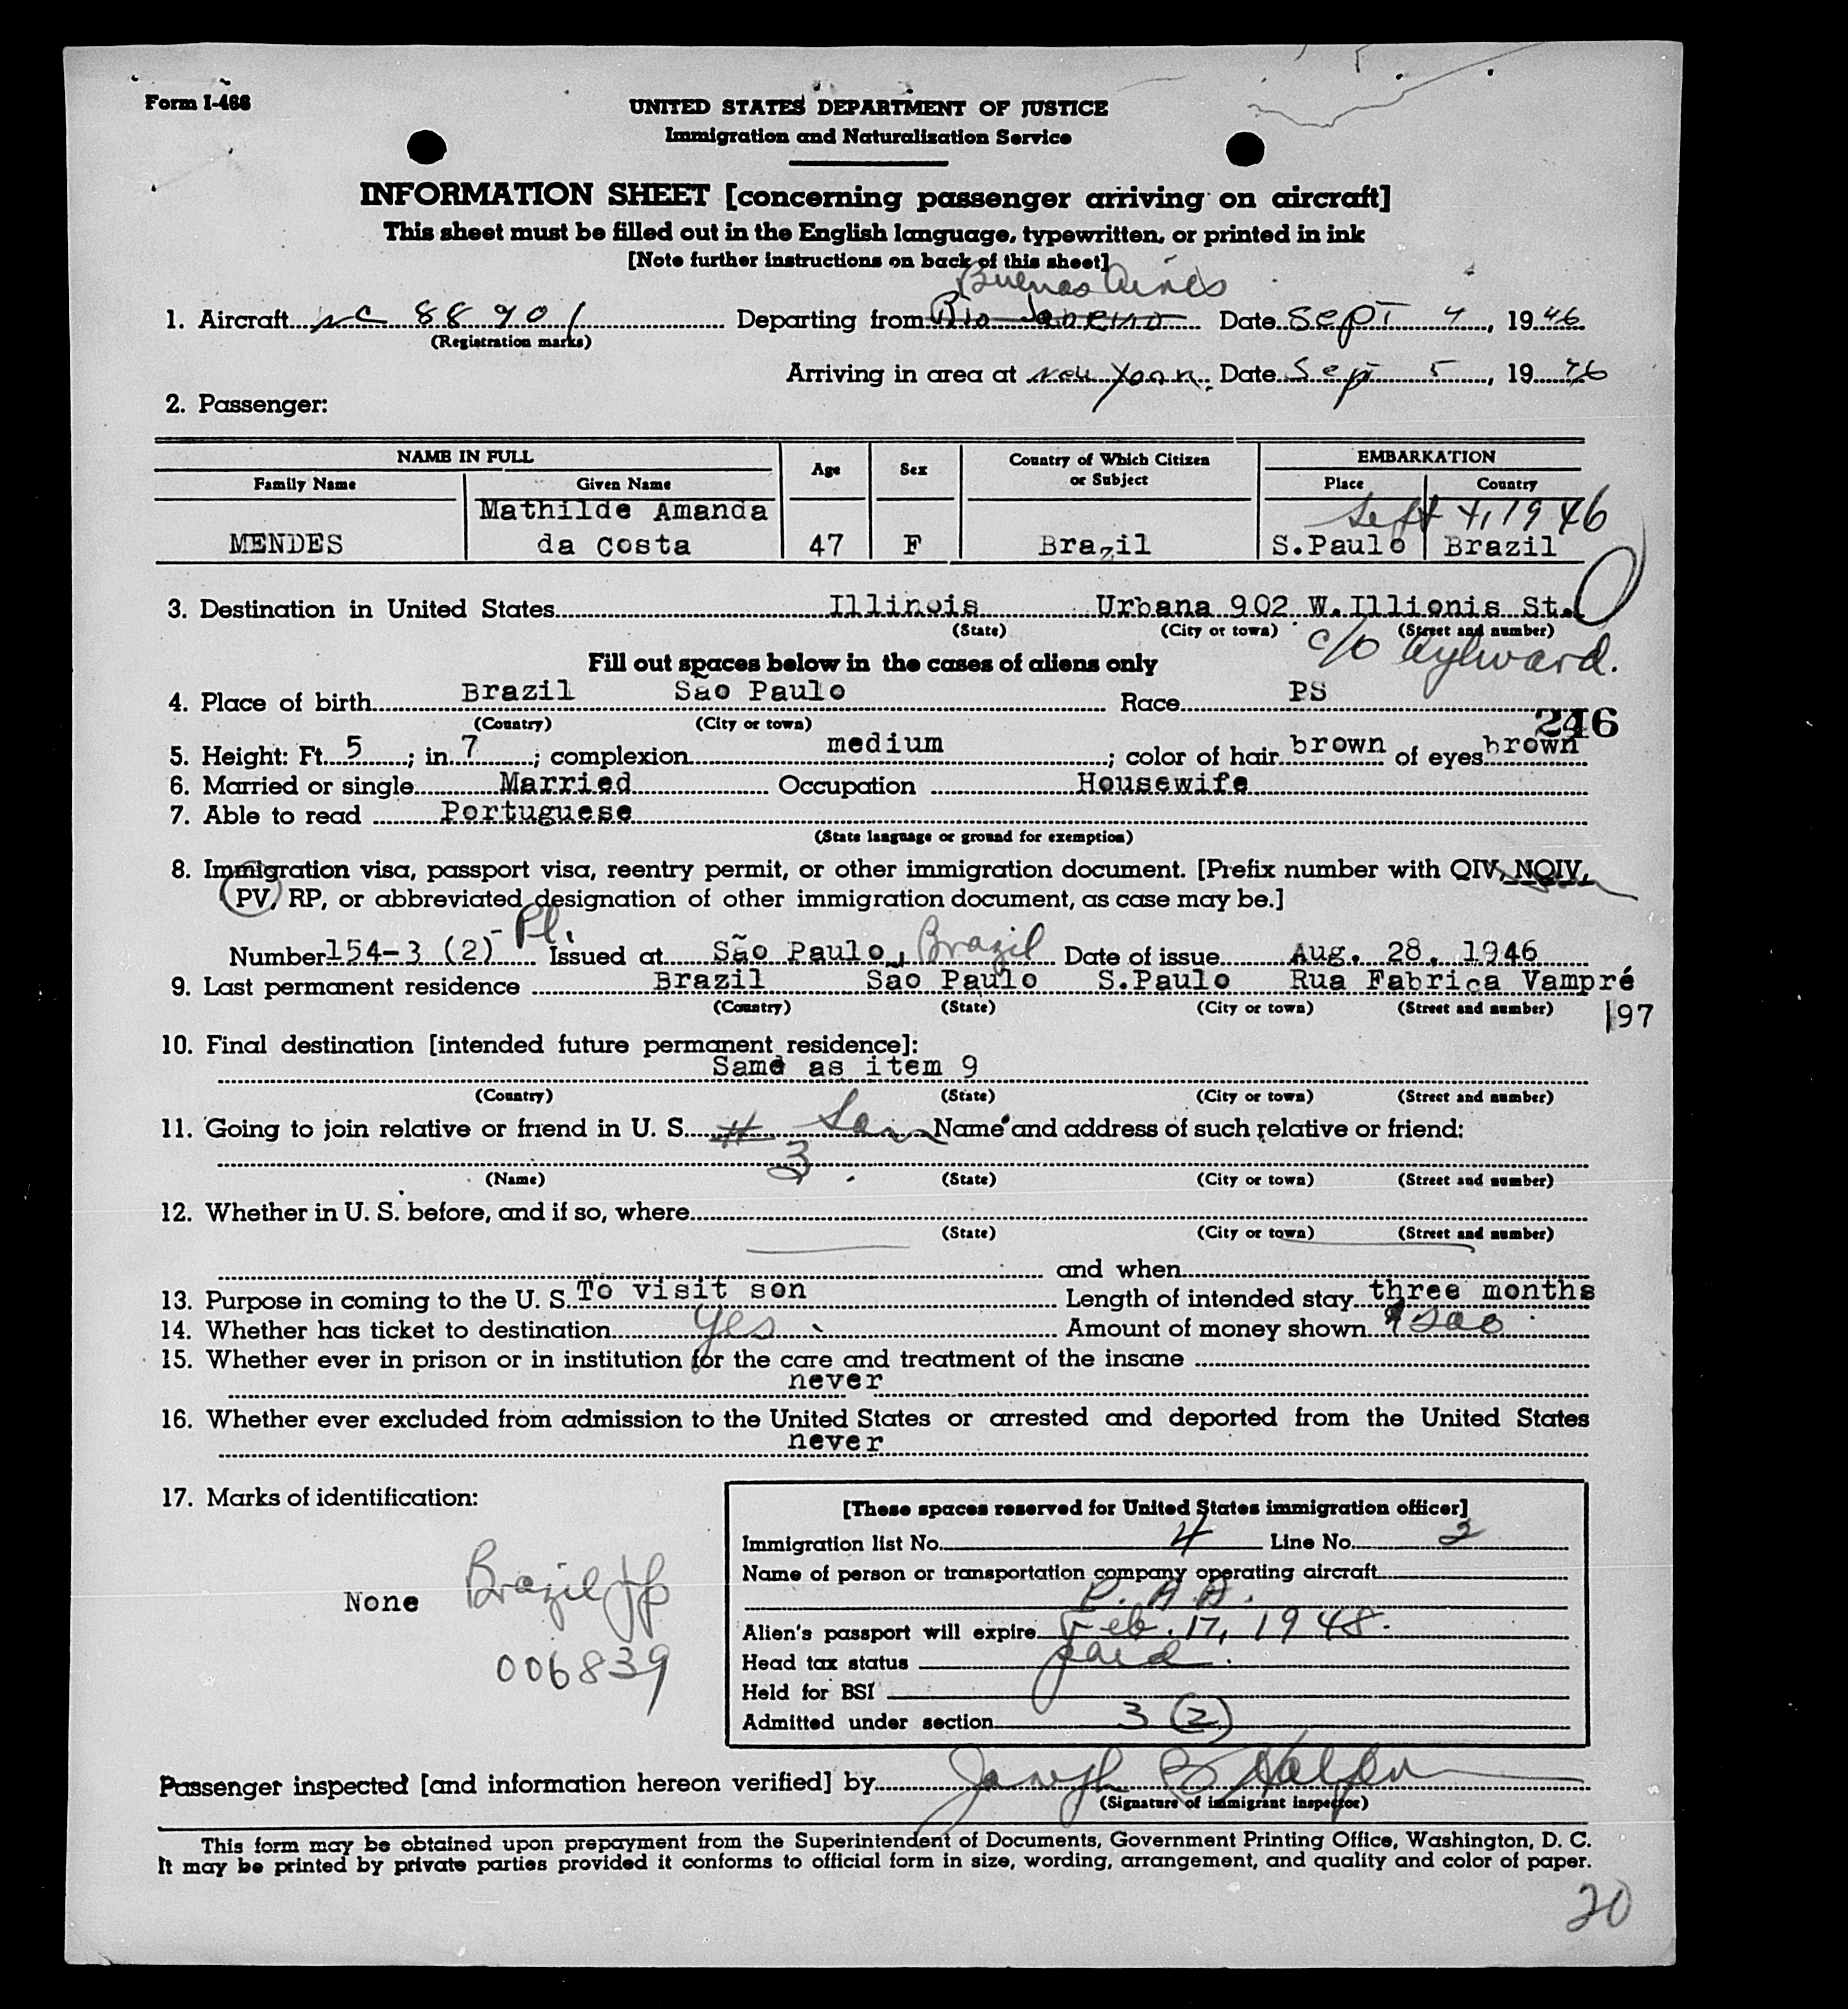 Form I-466
UNITED STATES DEPARTMENT OF JUSTICE
Immigration and Naturalization Service
INFORMATION SHEET [concerning passenger arriving on aircraft]
This sheet must be filled out in the English language, typewritten, or printed in ink
[Note further instructions on back of this sheet]
Buenos Aires
1. Aircraft NC 88901 Departing from Rio Janeiro Date Sept 4, 1946
(Registration marks)
Arriving in area at New York. Date Sept 5, 1946
2. Passenger:
NAME IN FULL Age Sex Country of Which Citizen or Subject EMBARKATION
Family Name Given Name Place Country
Mathilde Amanda Sept 4, 1946
MENDES da Costa 47 F Brazil S.Paulo Brazil
3. Destination in United States Illinois Urbana 902 W.Illionis St.
(State) (City or town) (Street and number)
c/o Aylward.
Fill out spaces below in the cases of aliens only
4. Place of birth Brazil São Paulo Race PS
(Country) (City or town)
246
5. Height: Ft. 5; in. 7; complexion medium; color of hair brown of eyes brown
6. Married or single Married Occupation Housewife
7. Able to read Portuguese
(State language or ground for exemption)
8. Immigration visa, passport visa, reentry permit, or other immigration document. [Prefix number with QIV, NQIV,
PV, RP, or abbreviated designation of other immigration document, as case may be.]
Number 154-3 (2)- Pl. Issued at São Paulo, Brazil Date of issue Aug. 28, 1946
9. Last permanent residence Brazil Sao Paulo S.Paulo Rua Fabrica Vampré
(Country) (State) (City or town) (Street and number) 197
10. Final destination [intended future permanent residence]:
Same as item 9
(Country) (State) (City or town) (Street and number)
11. Going to join relative or friend in U. S. # Son Name and address of such relative or friend:
3
(Name) (State) (City or town) (Street and number)
12. Whether in U. S. before, and if so, where
(State) (City or town) (Street and number)
and when
13. Purpose in coming to the U. S. To visit son Length of intended stay three months
14. Whether has ticket to destination Yes Amount of money shown $200
15. Whether ever in prison or in institution for the care and treatment of the insane
never
16. Whether ever excluded from admission to the United States or arrested and deported from the United States
never
17. Marks of identification:
None Brazil
006839
[These spaces reserved for United States immigration officer]
Immigration list No. 4 Line No. 2
Name of person or transportation company operating aircraft
P.A.A.
Alien's passport will expire Feb. 17, 1948.
Head tax status paid.
Held for BSI
Admitted under section 3 (2)
Passenger inspected [and information hereon verified] by Joseph B Halpern
(Signature of immigrant inspector)
This form may be obtained upon prepayment from the Superintendent of Documents, Government Printing Office, Washington, D. C.
It may be printed by private parties provided it conforms to official form in size, wording, arrangement, and quality and color of paper.
20